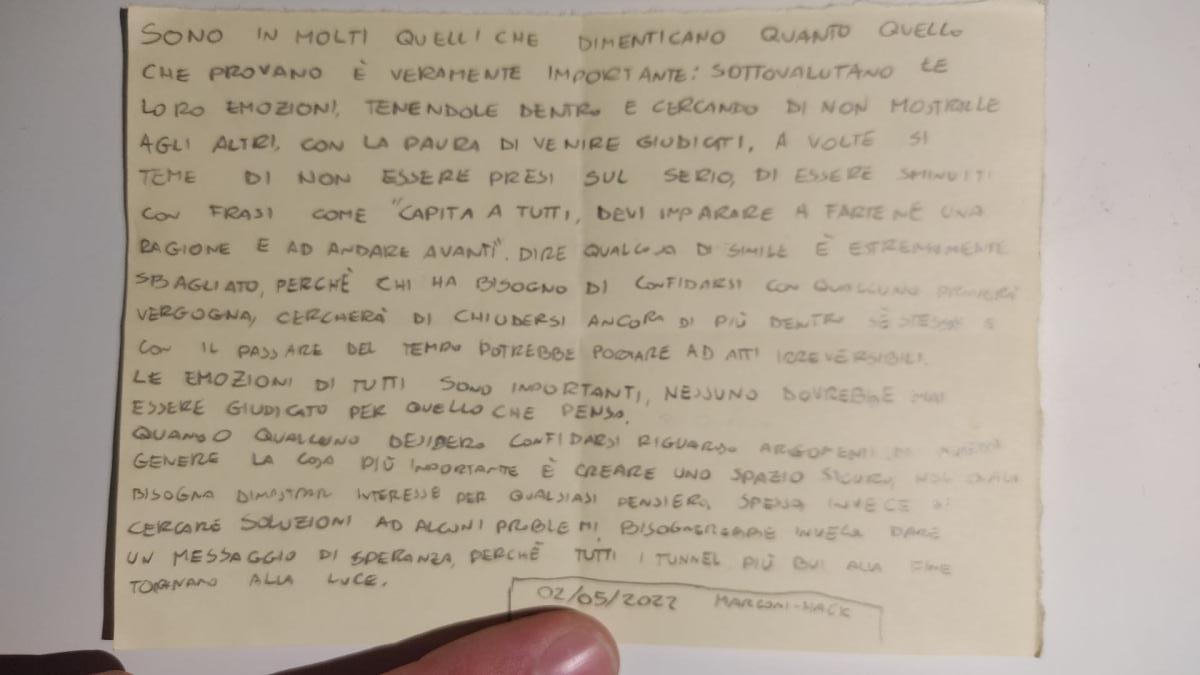 SONO IN MOLTI QUELLI CHE DIMENTICANO QUANTO QUELLO
CHE PROVANO È VERAMENTE IMPORTANTE: SOTTOVALUTANO LE
LORO EMOZIONI, TENENDOLE DENTRO E CERCANDO DI NON MOSTRALLE
AGLI ALTRI, CON LA PAURA DI VENIRE GIUDICATI, A VOLTE SI
TEME DI NON ESSERE PRESI SUL SERIO, DI ESSERE SMINUITI
CON FRASI COME "CAPITA A TUTTI, DEVI IMPARARE A FARTENE UNA
RAGIONE E AD ANDARE AVANTI". DIRE QUALCOSA DI SIMILE È ESTREMAMENTE
SBAGLIATO, PERCHÈ CHI HA BISOGNO DI CONFIDARSI CON QUALCUNO PROVERÀ
VERGOGNA, CERCHERÀ DI CHIUDERSI ANCORA DI PIÙ DENTRO SÈ STESSO E
CON IL PASSARE DEL TEMPO POTREBBE PORTARE AD ATTI IRREVERSIBILI.
LE EMOZIONI DI TUTTI SONO IMPORTANTI, NESSUNO DOVREBBE MAI
ESSERE GIUDICATO PER QUELLO CHE PENSA.
QUANDO QUALCUNO DESIDERA CONFIDARSI RIGUARDO ARGOMENTI DI QUESTO
GENERE LA COSA PIÙ IMPORTANTE È CREARE UNO SPAZIO SICURO, NEL QUALE
BISOGNA DIMOSTRAR INTERESSE PER QUALSIASI PENSIERO, SPESSO INVECE DI
CERCARE SOLUZIONI AD ALCUNI PROBLEMI BISOGNEREBBE INVECE DARE
UN MESSAGGIO DI SPERANZA, PERCHÈ TUTTI I TUNNEL PIÙ BUI ALLA FINE
TORNANO ALLA LUCE.
02/05/2022 MARCONI-HACK